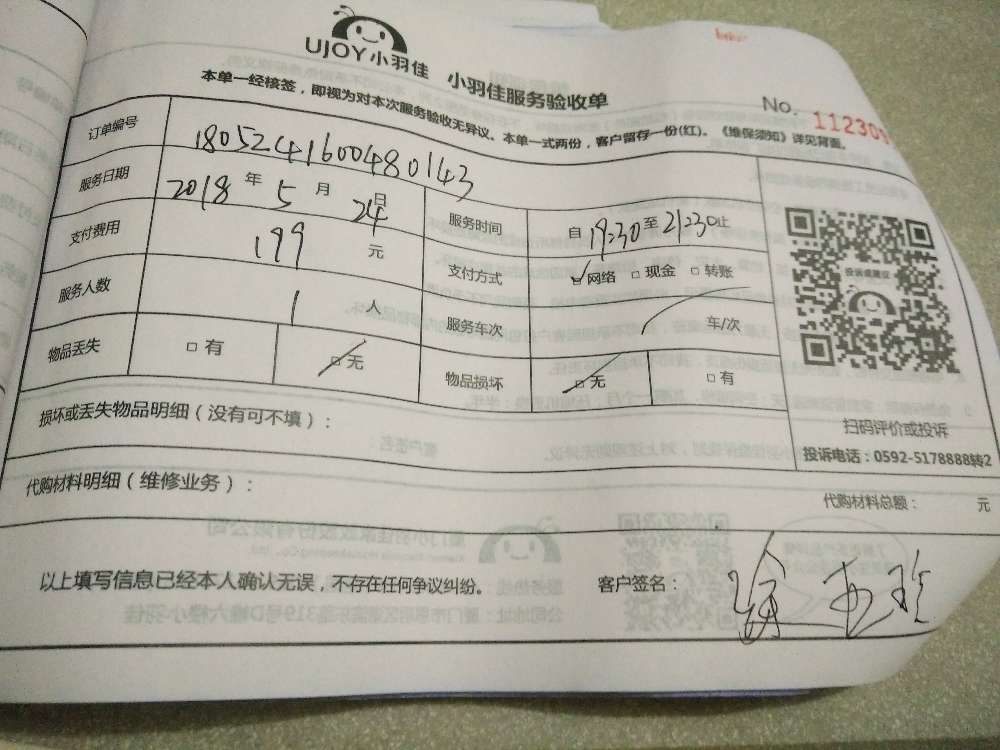 UJOY小羽佳 小羽佳服务验收单
No. 112309
本单一经核签，即视为对本次服务验收无异议。本单一式两份，客户留存一份(红)。《维保须知》详见背面。
订单编号 1805241600480143
服务日期 2018 年 5 月 24 日 服务时间 自 19:30 至 21:30 止
支付费用 199 元 支付方式 网络 现金 转账
服务人数 1 人 服务车次 车/次
物品丢失 有 无 物品损坏 无 有
投诉或建议
扫码评价或投诉
投诉电话：0592-5178888转2
损坏或丢失物品明细（没有可不填）：
代购材料明细（维修业务）： 代购材料总额： 元
以上填写信息已经本人确认无误，不存在任何争议纠纷。 客户签名：